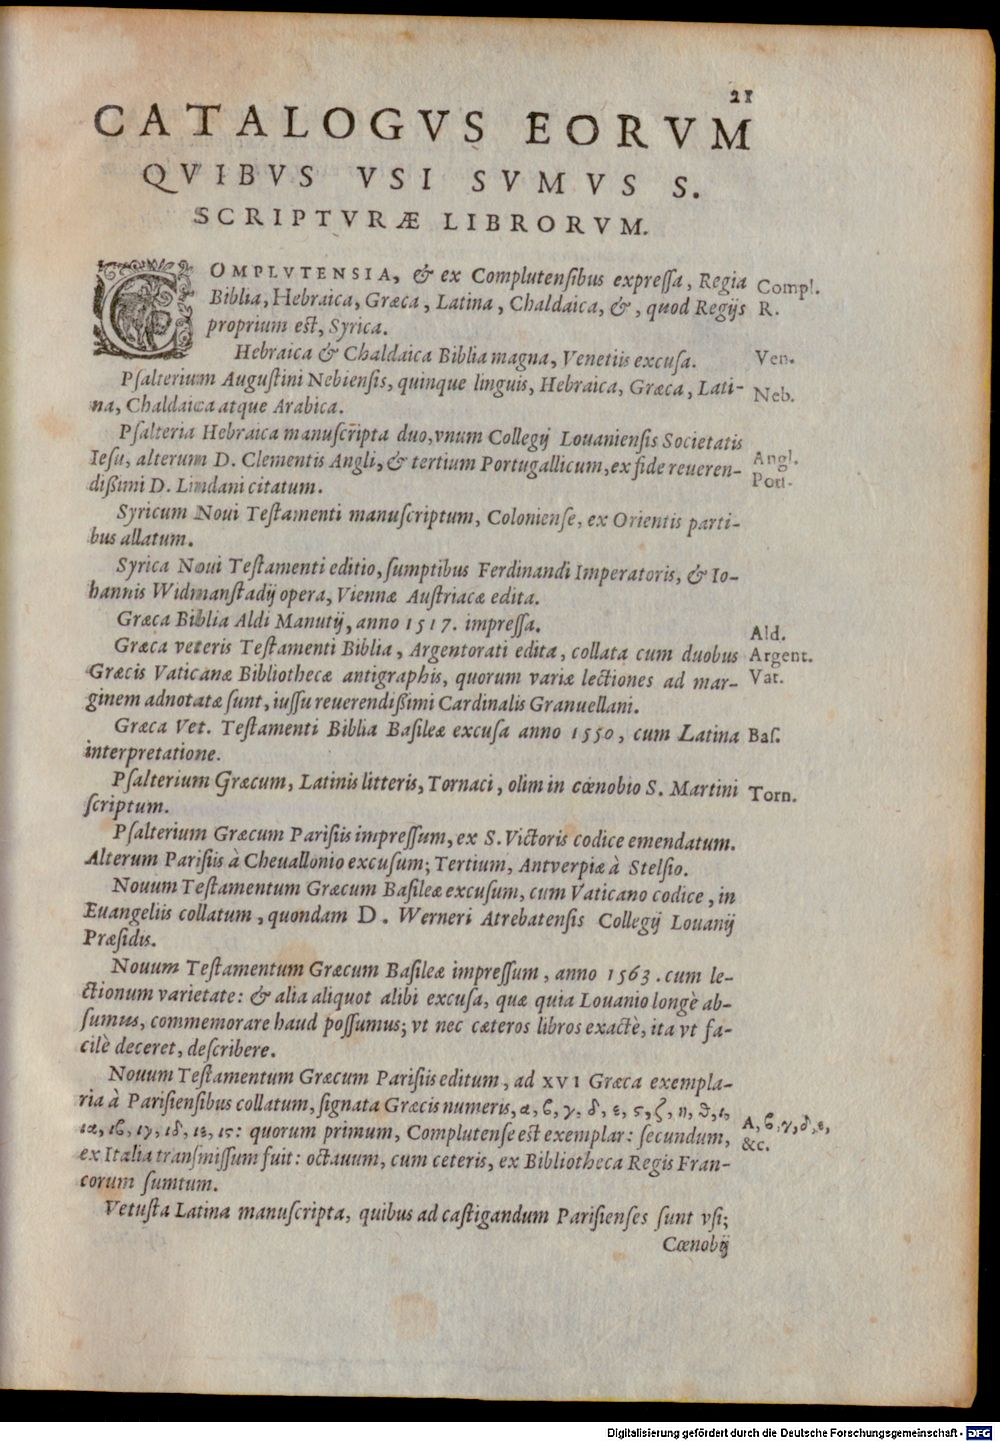 21
CATALOGVS EORVM
QVIBVS VSI SVMVS S.
SCRIPTVRÆ LIBRORVM.
COMPLVTENSIA, & ex Complutenſibus expreſſa, Regia Compl.
Biblia, Hebraica, Græca, Latina, Chaldaica, &, quod Regijs R.
proprium eſt, Syrica.
Hebraica & Chaldaica Biblia magna, Venetiis excuſa. Ven.
Pſalterium Auguſtini Nebienſis, quinque linguis, Hebraica, Græca, Lati- Neb.
na, Chaldaica atque Arabica.
Pſalteria Hebraica manuſcripta duo, vnum Collegij Louanienſis Societatis
Ieſu, alterum D. Clementis Angli, & tertium Portugallicum, ex fide reueren- Angl.
dißimi D. Lindani citatum. Port.
Syricum Noui Teſtamenti manuſcriptum, Colonienſe, ex Orientis parti-
bus allatum.
Syrica Noui Teſtamenti editio, ſumptibus Ferdinandi Imperatoris, & Io-
hannis Widmanſtadij opera, Viennæ Auſtriacæ edita.
Græca Biblia Aldi Manutij, anno 1517. impreſſa. Ald.
Græca veteris Teſtamenti Biblia, Argentorati edita, collata cum duobus Argent.
Græcis Vaticanæ Bibliothecæ antigraphis, quorum variæ lectiones ad mar- Vat.
ginem adnotatæ ſunt, iuſſu reuerendißimi Cardinalis Granuellani.
Græca Vet. Teſtamenti Biblia Baſileæ excuſa anno 1550, cum Latina Baſ.
interpretatione.
Pſalterium Græcum, Latinis litteris, Tornaci, olim in cœnobio S. Martini Torn.
ſcriptum.
Pſalterium Græcum Pariſiis impreſſum, ex S. Victoris codice emendatum.
Alterum Pariſiis à Cheuallonio excuſum; Tertium, Antverpiæ à Stelſio.
Nouum Teſtamentum Græcum Baſileæ excuſum, cum Vaticano codice, in
Euangeliis collatum, quondam D. Werneri Atrebatenſis Collegij Louanij
Præſidis.
Nouum Teſtamentum Græcum Baſileæ impreſſum, anno 1563. cum le-
ctionum varietate: & alia aliquot alibi excuſa, quæ quia Louanio longè ab-
ſumus, commemorare haud poſſumus; vt nec cæteros libros exactè, ita vt fa-
cilè deceret, deſcribere.
Nouum Teſtamentum Græcum Pariſiis editum, ad XVI Græca exempla-
ria à Pariſienſibus collatum, ſignata Græcis numeris, α, ϐ, γ, δ, ε, ϛ, ζ, η, ϑ, ι, A, ϐ, γ, δ, ε,
ια, ιϐ, ιγ, ιδ, ιε, ιϛ: quorum primum, Complutenſe eſt exemplar: ſecundum, &c.
ex Italia tranſmiſſum fuit: octauum, cum ceteris, ex Bibliotheca Regis Fran-
corum ſumtum.
Vetuſta Latina manuſcripta, quibus ad caſtigandum Pariſienſes ſunt vſi;
Cœnobij
Digitalisierung gefördert durch die Deutsche Forschungsgemeinschaft - DFG